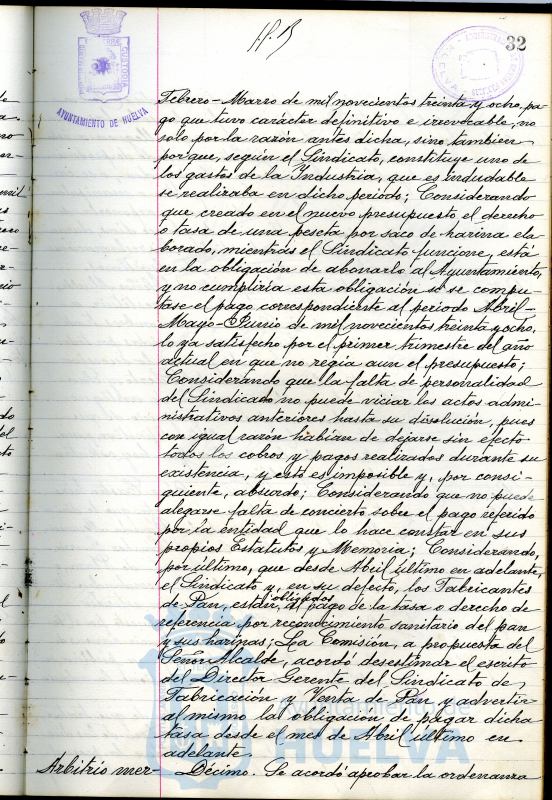 32
AYUNTAMIENTO DE HUELVA
Febrero-Marzo de mil novecientos treinta y ocho, pa-
go que tuvo carácter definitivo e irrevocable, no
solo por la razón antes dicha, sino tambien
porque, según el Sindicato, constituye uno de
los gastos de la Industria, que es indudable
se realizaba en dicho periodo; Considerando
que creado en el nuevo presupuesto el derecho
o tasa de una peseta por saco de harina ela-
borado, mientras el Sindicato funcione, está
en la obligación de abonarlo al Ayuntamiento,
y no cumpliria esta obligación si se compu-
tase el pago correspondiente al período Abril-
Mayo-Junio de mil novecientos treinta y ocho,
lo ya satisfecho por el primer trimestre del año
actual en que no regía aun el presupuesto;
Considerando que la falta de personalidad
del Sindicato no puede viciar los actos admi-
nistrativos anteriores hasta su disolución, pues
con igual razón habian de dejarse sin efecto
todos los cobros y pagos realizados durante su
existencia, y esto es imposible y, por consi-
guiente, absurdo; Considerando que no puede
alegarse falta de concierto sobre el pago referido
por la entidad que lo hace constar en sus
propios Estatutos y Memoria; Considerando,
por último, que desde Abril último en adelante,
el Sindicato y, en su defecto, los Fabricantes
de Pan, están obligados al pago de la tasa o derecho de
referencia por reconocimiento sanitario del pan
y sus harinas; La Comisión, a propuesta del
Señor Alcalde, acordó desestimar el escrito
del Director Gerente del Sindicato de
Fabricación y Venta de Pan y advertir
al mismo la obligación de pagar dicha
tasa desde el mes de Abril último en
adelante.
Arbitrio mer- Décimo. Se acordó aprobar la ordenanza
Ayuntamiento de
HUELVA